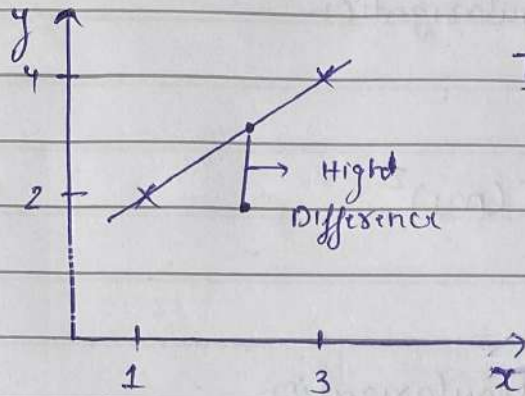 y
4
2
High
Difference
1
3
x